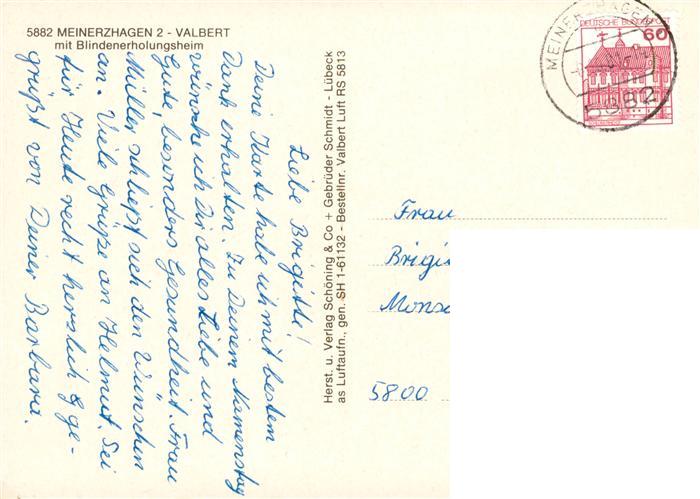 5882 MEINERZHAGEN 2 - VALBERT
mit Blindenerholungsheim
Liebe Brigitte!
Deine Karte habe ich mit bestem
Dank erhalten. Zu Deinem Namenstag
wünsche ich Dir alles Liebe und
Gute, besonders Gesundheit. Frau
Müller schließt sich den Wünschen
an. Viele Grüße an Helmut. Sei
für Heute recht herzlich ge-
grüßt von Deiner Barbara.
Herst. u. Verlag Schöning & Co + Gebrüder Schmidt - Lübeck
as Luftaufn., gen. SH 1-61132 - Bestellnr. Valbert Luft RS 5813
DEUTSCHE BUNDESPOST
60
MEINERZHAGEN
5882
Frau
Brigi
Monsc
5800